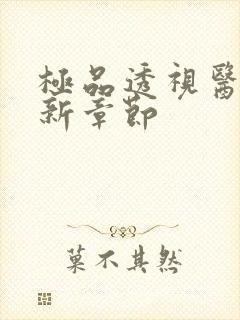 極品透視醫
新章節
菓不其然